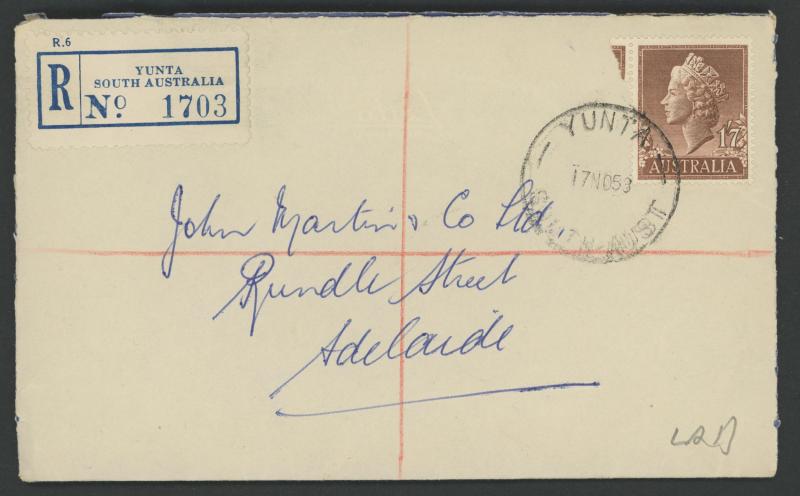 R.6
R
YUNTA
SOUTH AUSTRALIA
No. 1703
1'7
AUSTRALIA
YUNTA
17NO58
SOUTH-AUST
John Martin & Co Ltd.,
Rundle Street
Adelaide